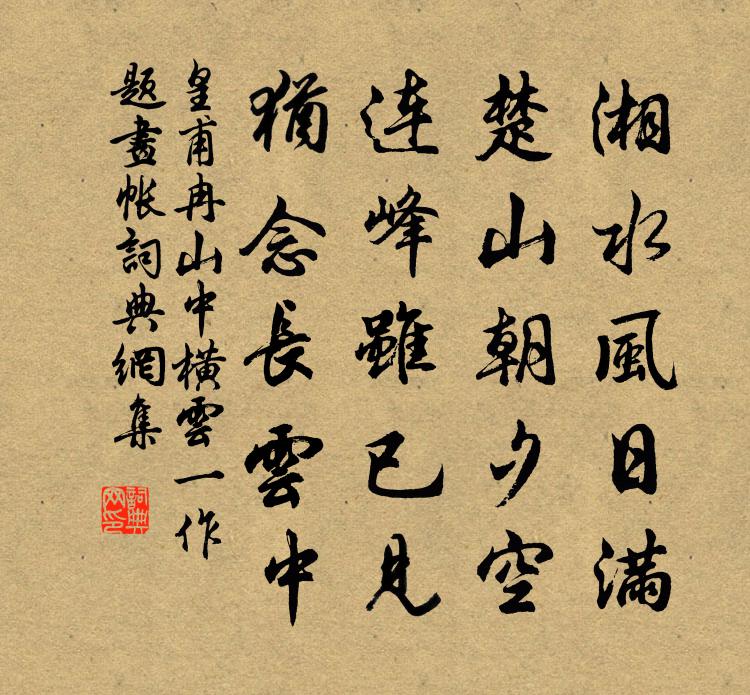 湘水風日满
楚山朝夕空
连峰雖已見
猶念長雲中
皇甫冉山中橫雲一作
题畫帐詞典網集
詞典网印